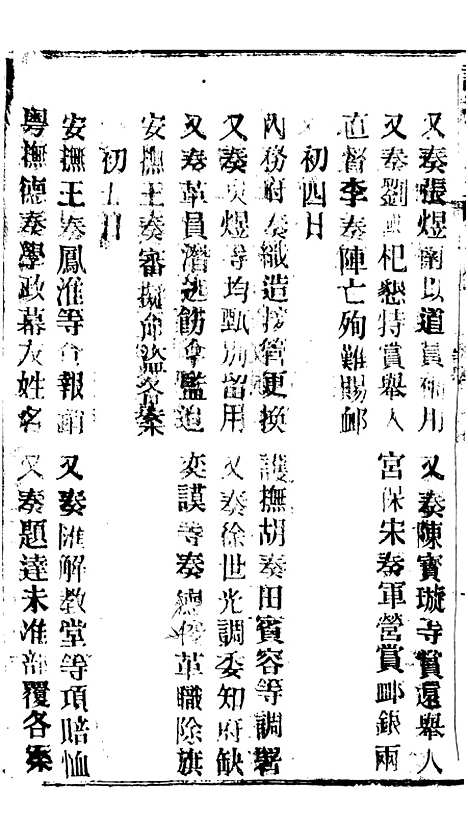 又奏張煜南以道員補用　又奏陳寶璇等賞還舉人
又奏劉　杞懇特賞舉人　宮保宋奏軍營賞䘏銀兩
直督李奏陣亡殉難賜䘏
初四日
內務府奏織造接管更換　護撫胡奏田賓容等調署
又奏　煜等均甄別留用　又奏徐世光調委知府缺
又奏革員潛逃飭拿監追　奕謨等奏總　革職除旗
安撫王奏審擬　盜各案
初五日
安撫王奏鳳淮等　報銷　又奏匯解教堂等項賠恤
粵撫德奏學政幕友姓名　又奏題達未准部覆各案